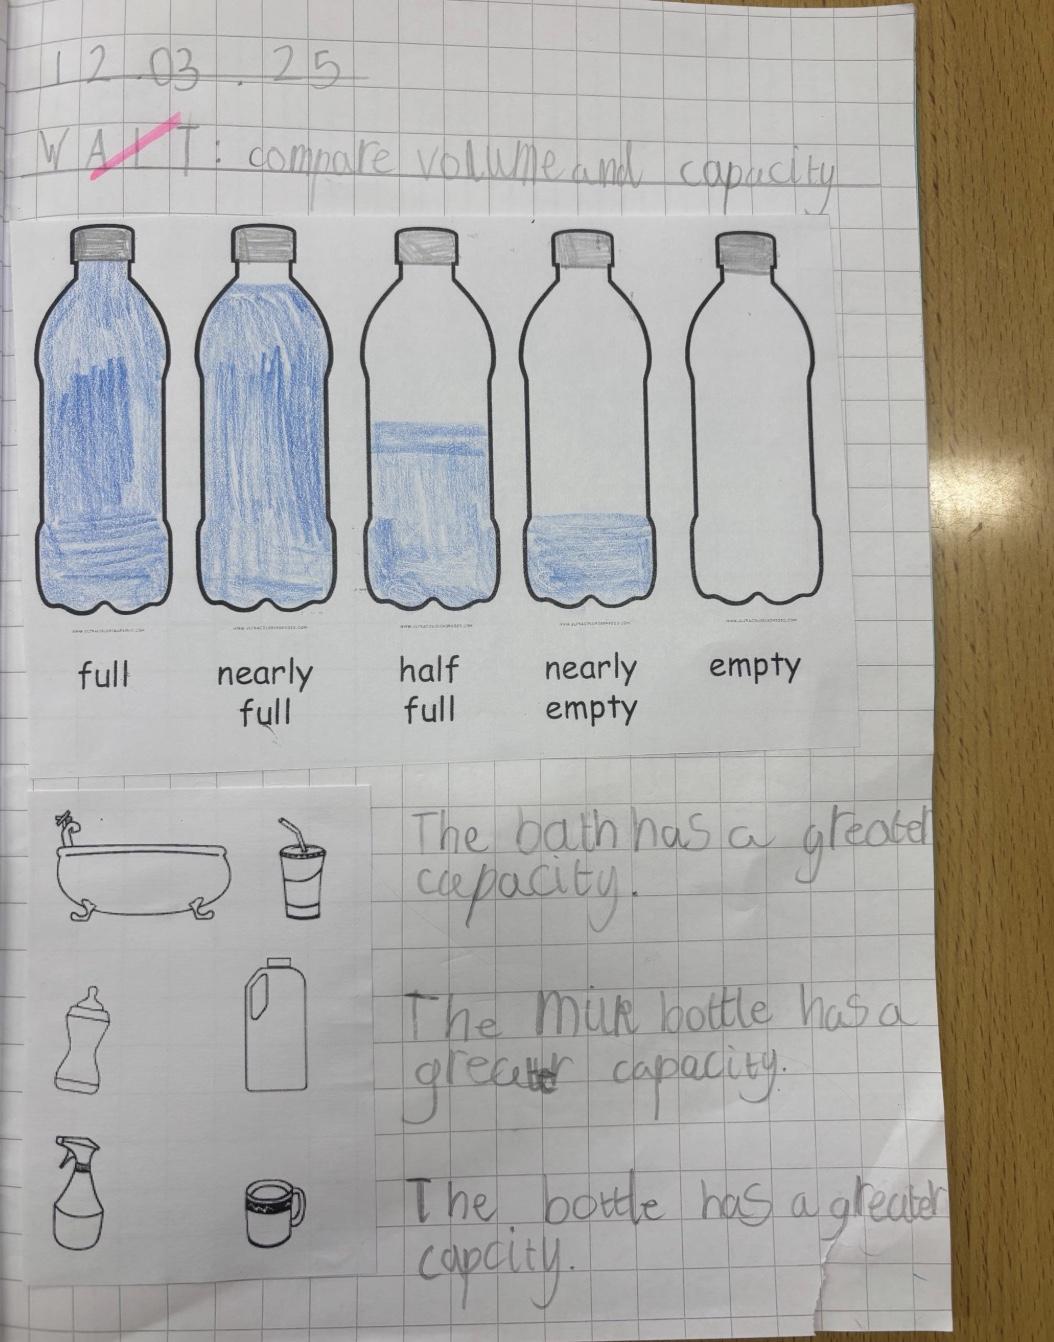 12.03.25
WALT: compare volume and capacity
full
nearly
full
half
full
nearly
empty
empty
The bath has a greater
capacity.
The milk bottle has a
greater capacity.
The bottle has a greater
capcity.